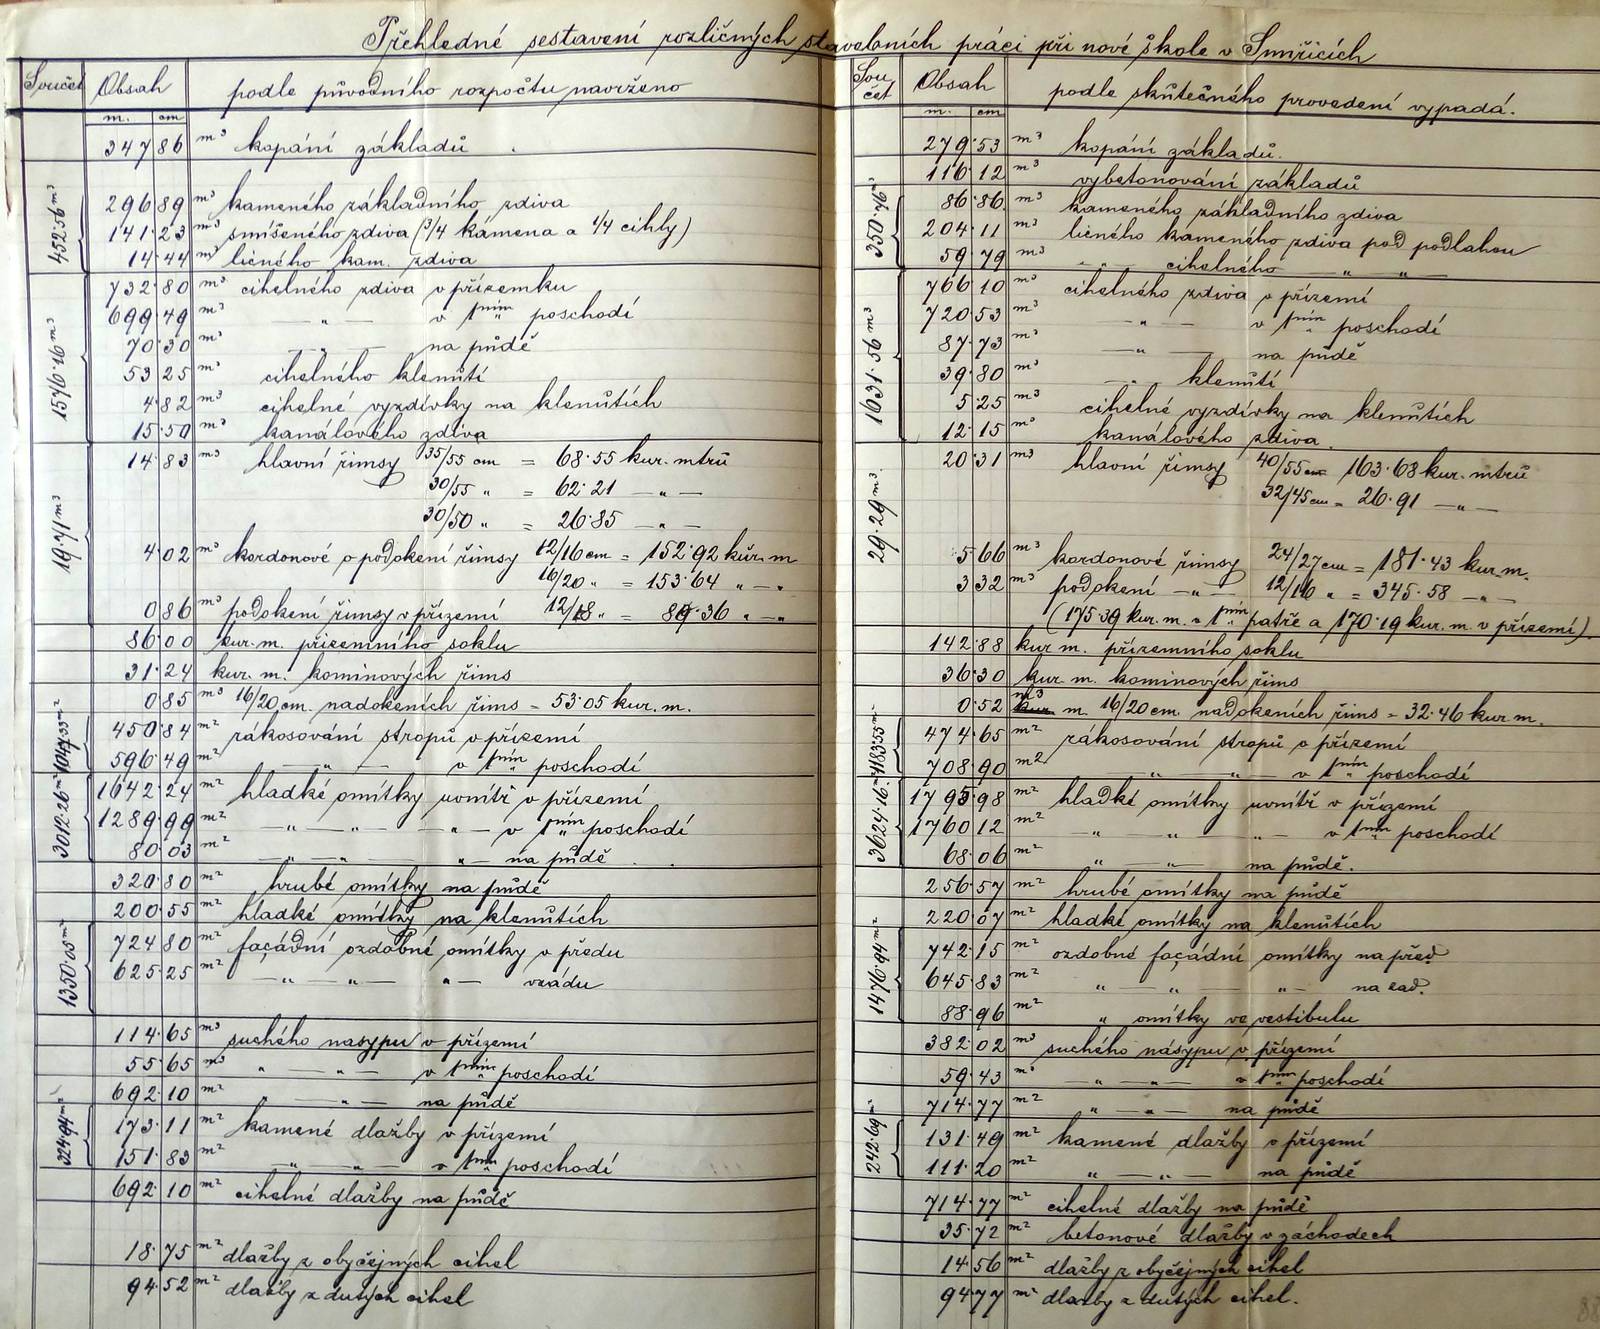 Přehledné sestavení rozličných stavebních prácí při nové škole v Smiřicích
Součet Obsah podle původního rozpočtu navrženo
m. cm
347·86 m³ kopání základů
452·56 m³
296 89 m³ kameného základního zdiva
141·23 m³ smíšeného zdiva (3/4 kamena a 1/4 cihly)
14·44 m³ lícného kam. zdiva
1576·16 m³
732·80 m³ cihelného zdiva v přízemku
699·49 m³ — „ — v 1ním poschodí
70·30 m³ — „ — na půdě
53 25 m³ cihelného klenutí
4·82 m³ cihelné vyzdívky na klenutích
15·50 m³ kanálového zdiva
19·71 m³
14·83 m³ hlavní římsy 35/55 cm = 68·55 kur. mtrů
30/55 „ = 62·21 — „ —
30/50 „ = 26·85 — „ —
4·02 m³ kordonové o podokení římsy 12/16 cm = 152·92 kur. m
16/20 „ = 153·64 „ — „
0 86 m³ podokení římsy v přízemí 12/18 „ = 89·36 „ — „
86·00 kur. m. přízemního soklu
31·24 kur. m. komínových říms
0 85 m³ 16/20 cm. nadokeních říms = 53·05 kur. m.
1047·33 m²
450·84 m² rákosování stropů v přízemí
596·49 m² — „ — v 1ním poschodí
3012·26 m²
1642·24 m² hladké omítky uvnitř v přízemí
1289·99 m² — „ — „ — „ — v 1ním poschodí
80 03 m² — „ — „ — „ — na půdě
320·80 m² hrubé omítky na půdě
200·55 m² hladké omítky na klenutích
1350·05 m²
724 80 m² façádní ozdobné omítky v předu
625·25 m² — „ — „ — „ — vzádu
114·65 m³ suchého nasypu v přízemí
55·65 m³ „ — „ — v 1ním poschodí
692·10 m² „ — „ — na půdě
324·94 m²
173·11 m² kamené dlažby v přízemí
151·83 m² — „ — „ — v 1ním poschodí
692·10 m² cihelné dlažby na půdě
18·75 m² dlažby z obyčejných cihel
94·52 m² dlažby z dutých cihel
Sou čet Obsah podle skutečného provedení vypadá.
m. cm
279·53 m³ kopání základů.
116 12 m³ vybetonování základů
350·76 m³
86·86 m³ kameného základního zdiva
204·11 m³ lícného kameného zdiva pod podlahou
59·79 m³ — „ — cihelného — „ — „ —
1631·56 m³
766 10 m³ cihelného zdiva v přízemí
720·53 m³ — „ — v 1ním poschodí
87·73 m³ — „ — na půdě
39·80 m³ — „ klenutí
5·25 m³ cihelné vyzdívky na klenutích
12·15 m³ kanálového zdiva.
29·29 m³
20·31 m³ hlavní římsy 40/55 cm 163·68 kur. mtrů
32/45 cm = 26·91 — „ —
5 66 m³ kordonové římsy 24/27 cm = 181·43 kur. m.
3 32 m³ podokení — „ — 12/16 „ = 345·58 — „ —
(175·39 kur. m. v 1ním patře a 170·19 kur. m. v přízemí)
142·88 kur m. přízemního soklu
36·30 kur. m. komínových říms
0·52 m³ 16/20 cm. nadokeních říms = 32·46 kur m.
1183·55 m²
474·65 m² rákosování stropů v přízemí
708·90 m² „ — „ — v 1ním poschodí
3624·16 m²
1795·98 m² hladké omítky uvnitř v přízemí
1760 12 m² „ „ „ — v 1ním poschodí
68·06 m² „ — „ — na půdě.
256·57 m² hrubé omítky na půdě
220·07 m² hladké omítky na klenutích
1476·94 m²
742·15 m² ozdobné façádní omítky na před
645·83 m² „ — „ — „ — na zad.
88·96 m² „ omítky ve vestibulu
382·02 m³ suchého násypu v přízemí
59·43 m³ — „ — „ — v 1ním poschodí
714·77 m² „ — „ — na půdě
242·69 m²
131·49 m² kamené dlažby v přízemí
111·20 m² „ — „ — na půdě
714·77 m² cihelné dlažby na půdě
35·72 m² betonové dlažby v záchodech
14 56 m² dlažby z obyčejných cihel
94 77 m² dlažby z dutých cihel.